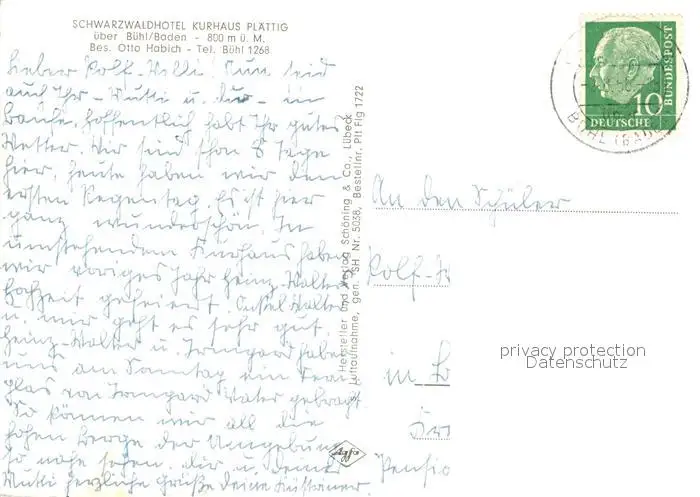 SCHWARZWALDHOTEL KURHAUS PLÄTTIG
über Bühl/Baden - 800 m ü. M.
Bes. Otto Habich - Tel. Bühl 1268
Lieber Rolf-Willi! Nun seid
auch Ihr - Mutti u. du - in
hoffentlich habt Ihr gutes
Wetter. Wir sind schon 8 Tage
hier, heute haben wir den
ersten Regentag. Es ist hier
ganz wunderschön. Im
umstehenden Kurhaus haben
wir voriges Jahr Heinz-Walter
Hochzeit gefeiert. Onkel Walter
u. mir geht es sehr gut.
Heinz-Walter u. Irmgard haben
uns am Samstag ein Fern-
glas von Irmgard Vater gebracht
So können wir all die
hohen Berge der Umgebung
so nahe sehen. Dir u. Deiner
Mutti herzliche Grüße Deine
Hersteller und Verlag Schöning & Co., Lübeck
Luftaufnahme, gen. SH Nr. 5038, Bestellnr. Plt Flg 1722
Agfa
10
DEUTSCHE
BUNDESPOST
BÜHL (BADEN)
An den Schüler
Rolf-
in
Pensio
privacy protection
Datenschutz